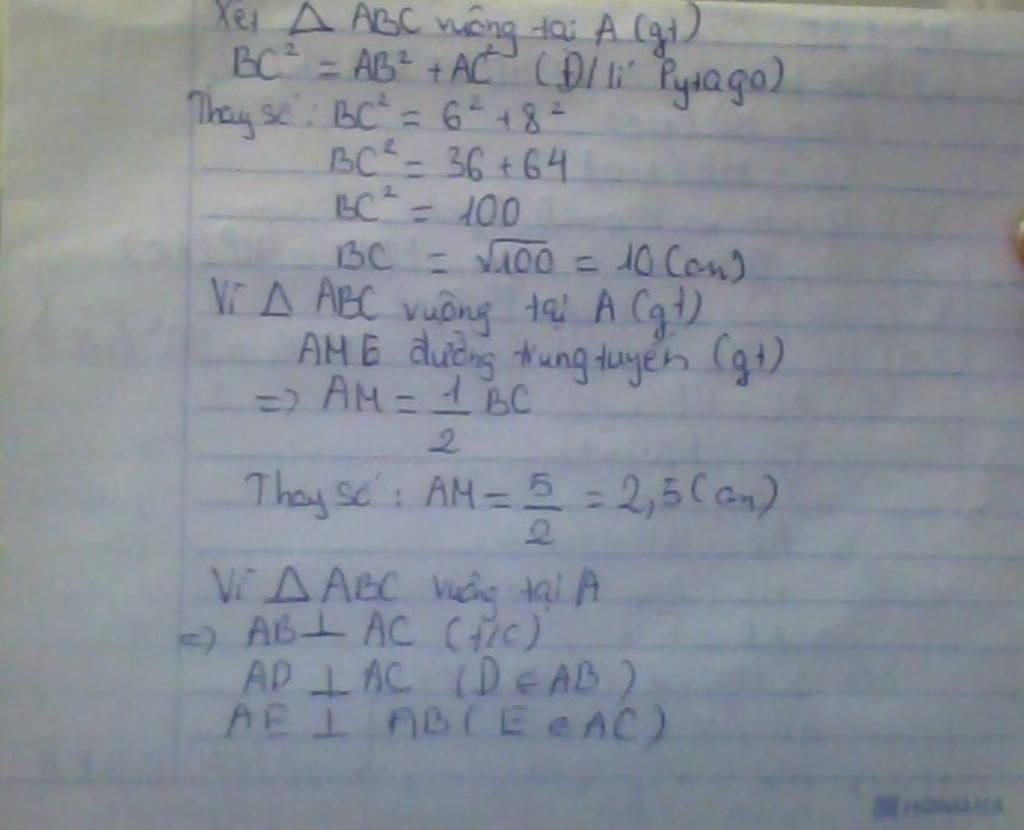 Xét △ ABC vuông tại A (gt)
BC² = AB² + AC² (Đ/lí Pytago)
Thay số: BC² = 6² + 8²
BC² = 36 + 64
BC² = 100
BC = √100 = 10 (cm)
Vì △ ABC vuông tại A (gt)
AM E đường trung tuyến (gt)
=> AM = 1/2 BC
Thay số: AM = 5/2 = 2,5 (cm)
Vì △ ABC vuông tại A
=> AB ⊥ AC (t/c)
AD ⊥ AC (D ∈ AB)
AE ⊥ AB (E ∈ AC)